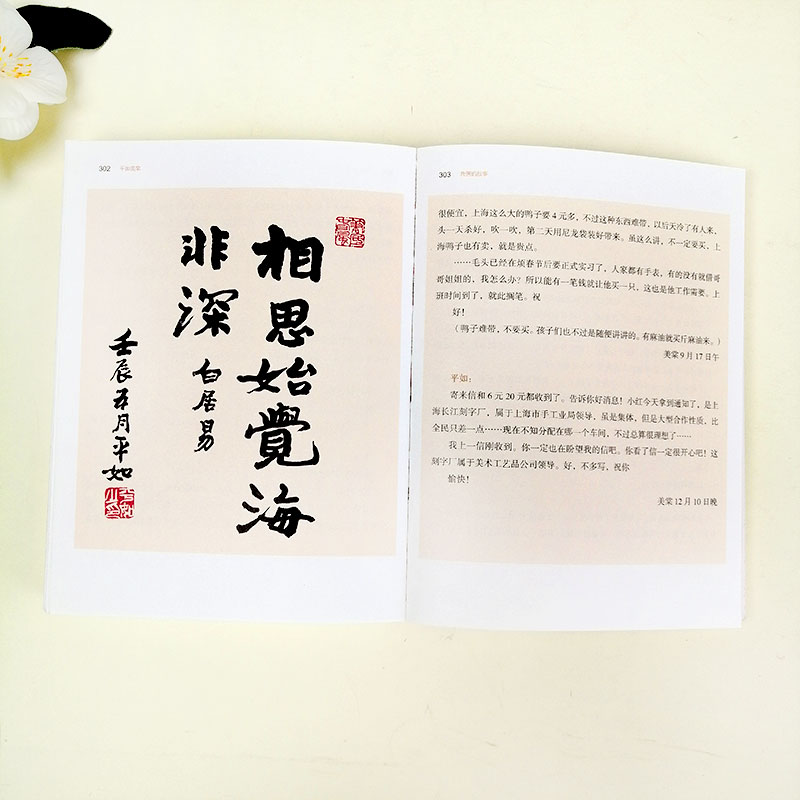 302 平如美棠
相思始覺海
非深
白居易
壬辰五月平如
303
很便宜，上海这么大的鸭子要4元多，不过这种东西难带，以后天冷了有人来，
头一天杀好，吹一吹，第二天用尼龙袋装好带来。虽这么讲，不一定要买，上
海鸭子也有卖，就是贵点。
……毛头已经在烦春节后要正式实习了，人家都有手表，有的没有就借哥
哥姐姐的，我怎么办？所以能有一笔钱就让他买一只，这也是他工作需要。上
班时间到了，就此搁笔。祝
好！
（鸭子难带，不要买。孩子们也不过是随便讲讲的。有麻油就买斤麻油来。）
美棠9月17日午
平如：
寄来信和6元20元都收到了。告诉你好消息！小红今天拿到通知了，是上
海长江刻字厂，属于上海市手工业局领导，虽是集体，但是大型合作性质，比
全民只差一点……现在不知分配在哪一个车间，不过总算很理想了……
我上一信刚收到。你一定也在盼望我的信吧。你看了信一定很开心吧！这
刻字厂属于美术工艺品公司领导。好，不多写，祝你
愉快！
美棠12月10日晚